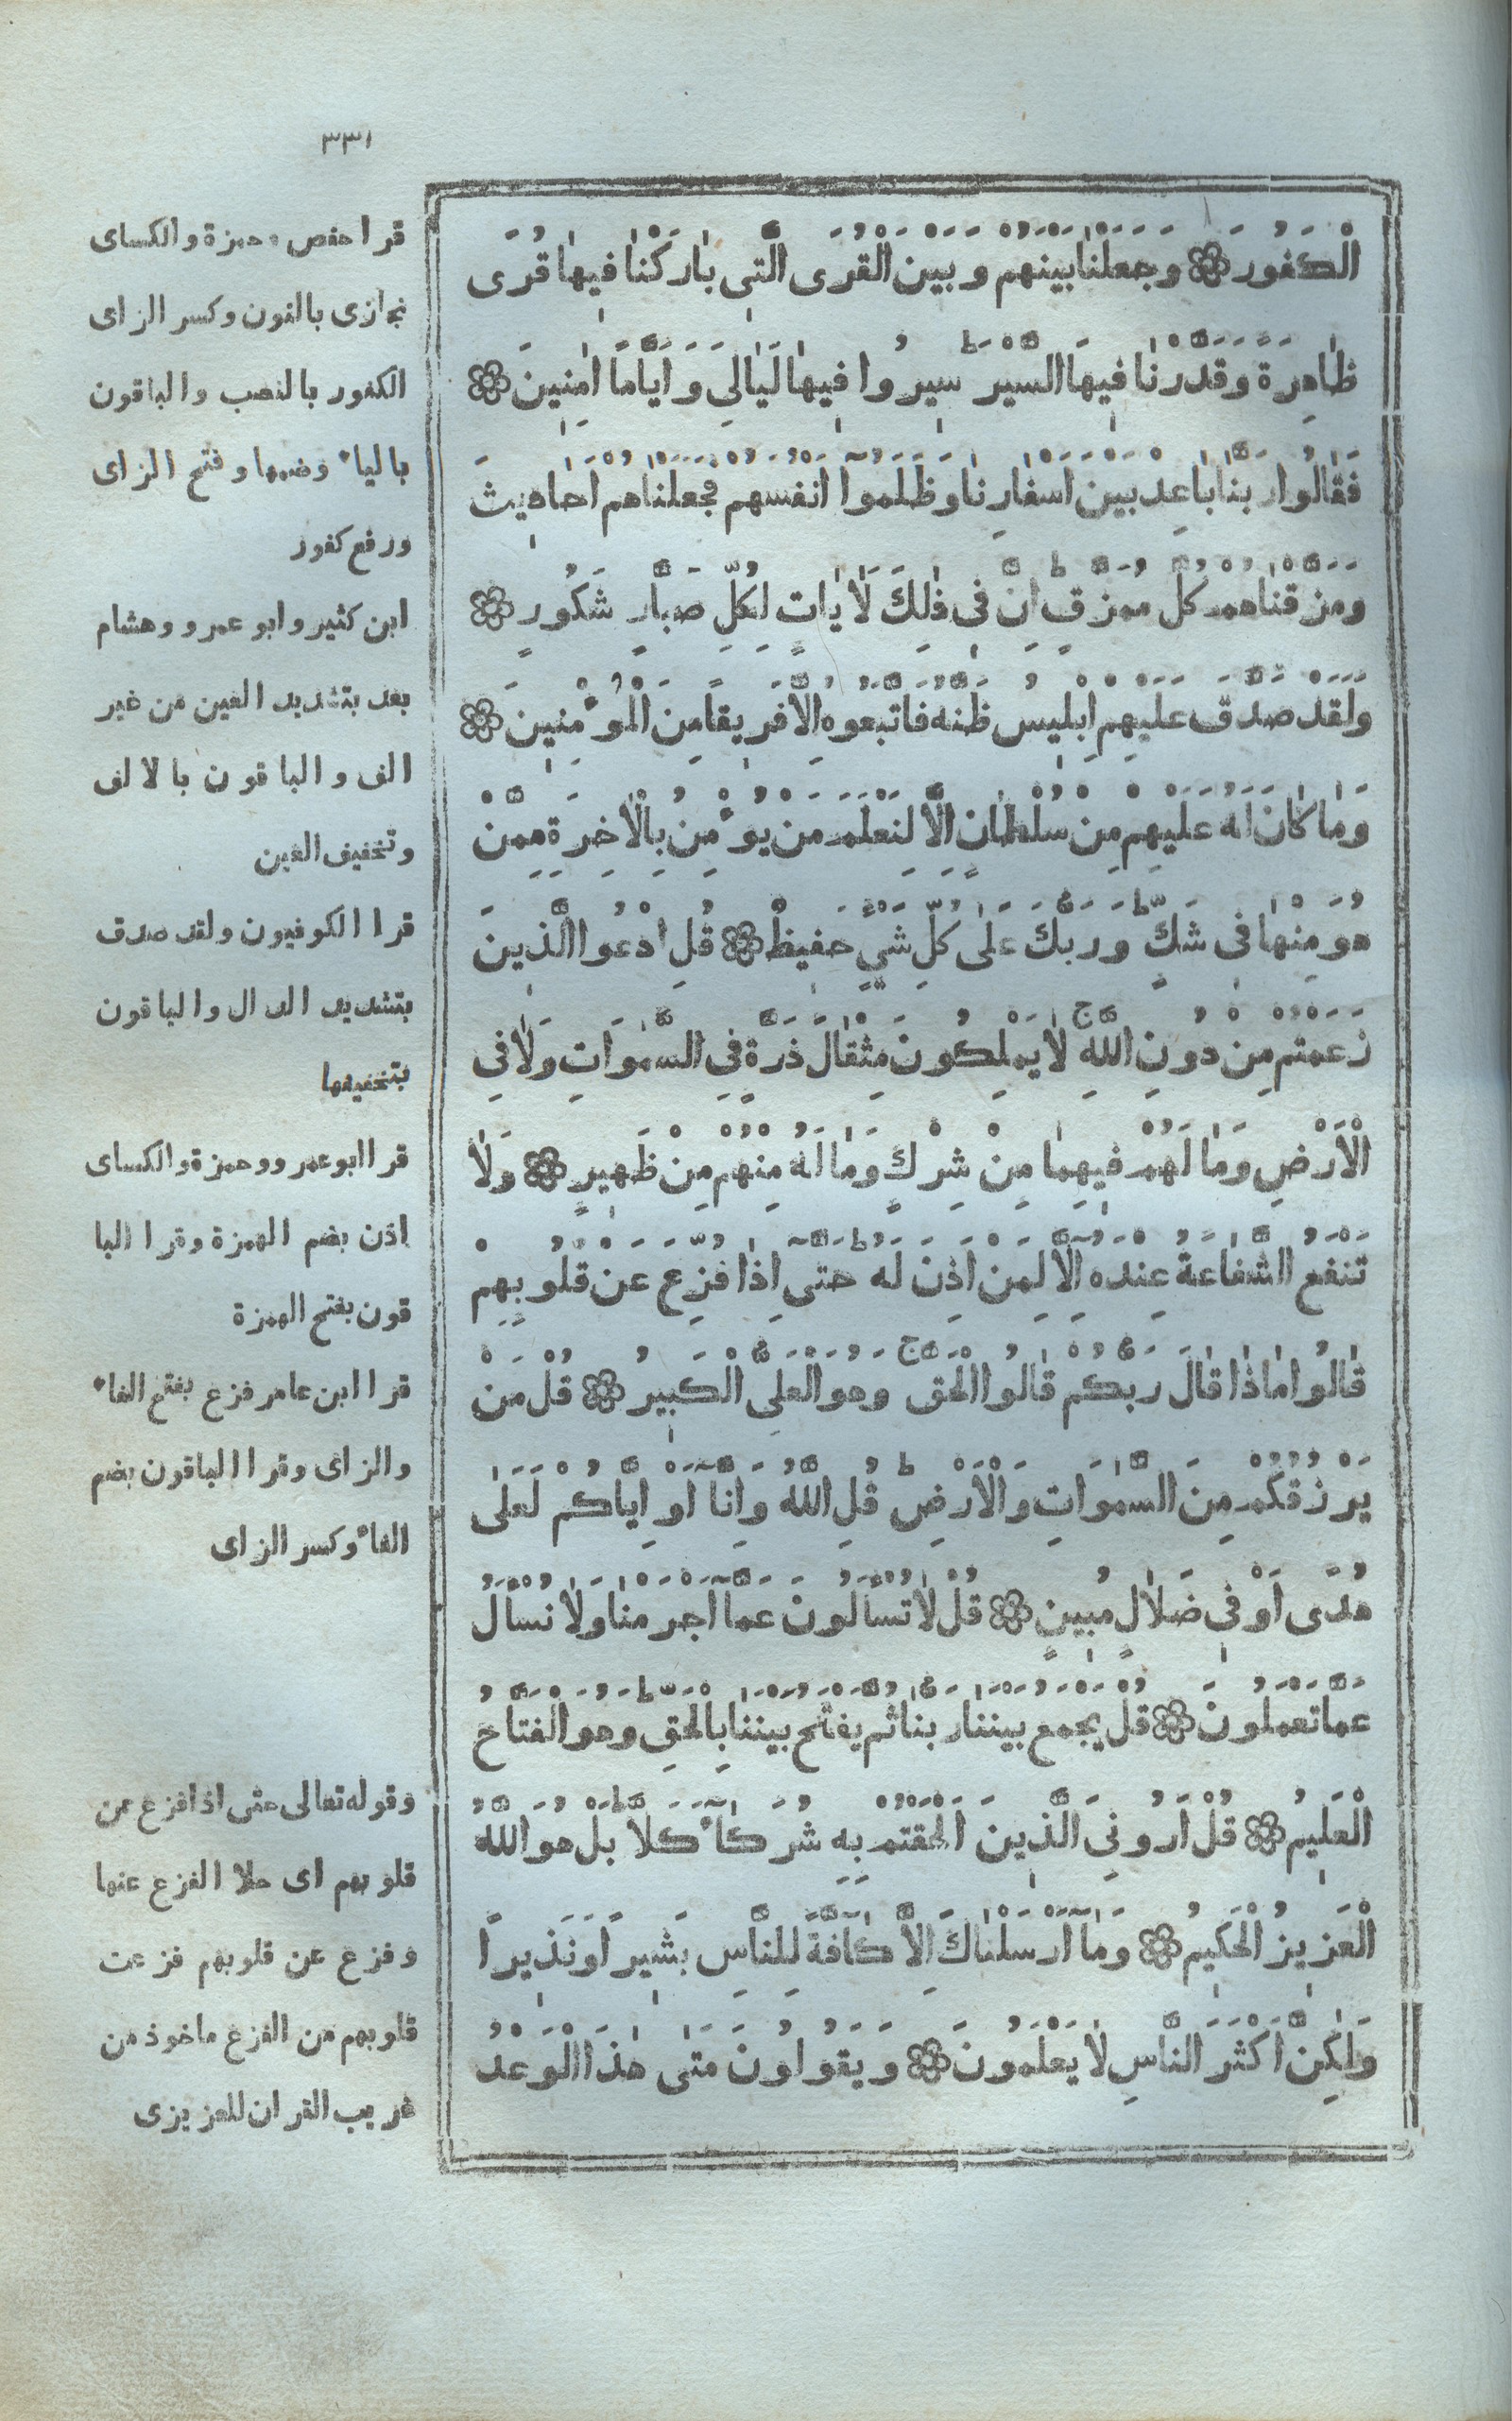 ٣٣١
الْكَفُورَ ۞ وَجَعَلْنٰا بَيْنَهُمْ وَبَيْنَ الْقُرَى الَّتٖى بٰارَكْنٰا فٖيهٰا قُرًى
ظٰاهِرَةً وَقَدَّرْنٰا فٖيهَا السَّيْرَ ط سٖيرُوا فٖيهٰا لَيٰالِىَ وَاَيَّامًا اٰمِنٖينَ ۞
فَقٰالُوا رَبَّنٰا بٰاعِدْ بَيْنَ اَسْفٰارِنٰا وَظَلَمُوٓا اَنْفُسَهُمْ فَجَعَلْنٰاهُمْ اَحٰادٖيثَ
وَمَزَّقْنٰاهُمْ كُلَّ مُمَزَّقٍ ط اِنَّ فٖى ذٰلِكَ لَاٰيٰاتٍ لِكُلِّ صَبَّارٍ شَكُورٍ ۞
وَلَقَدْ صَدَّقَ عَلَيْهِمْ اِبْلٖيسُ ظَنَّهُ فَاتَّبَعُوهُ اِلَّا فَرٖيقًا مِنَ الْمُؤْمِنٖينَ ۞
وَمٰا كٰانَ لَهُ عَلَيْهِمْ مِنْ سُلْطٰانٍ اِلَّا لِنَعْلَمَ مَنْ يُؤْمِنُ بِالْاٰخِرَةِ مِمَّنْ
هُوَ مِنْهٰا فٖى شَكٍّ ط وَرَبُّكَ عَلٰى كُلِّ شَىْءٍ حَفٖيظٌ ۞ قُلِ ادْعُوا الَّذٖينَ
زَعَمْتُمْ مِنْ دُونِ اللّٰهِ ج لٰا يَمْلِكُونَ مِثْقٰالَ ذَرَّةٍ فِى السَّمٰوَاتِ وَلٰا فِى
الْاَرْضِ وَمٰا لَهُمْ فٖيهِمٰا مِنْ شِرْكٍ وَمٰا لَهُ مِنْهُمْ مِنْ ظَهٖيرٍ ۞ وَلٰا
تَنْفَعُ الشَّفٰاعَةُ عِنْدَهُٓ اِلَّا لِمَنْ اَذِنَ لَهُ ط حَتَّىٓ اِذٰا فُزِّعَ عَنْ قُلُوبِهِمْ
قٰالُوا مٰاذٰا قٰالَ رَبُّكُمْ قٰالُوا الْحَقَّ ج وَهُوَ الْعَلِىُّ الْكَبٖيرُ ۞ قُلْ مَنْ
يَرْزُقُكُمْ مِنَ السَّمٰوَاتِ وَالْاَرْضِ ط قُلِ اللّٰهُ وَاِنَّآ اَوْ اِيَّاكُمْ لَعَلٰى
هُدًى اَوْ فٖى ضَلٰالٍ مُبٖينٍ ۞ قُلْ لٰا تُسْأَلُونَ عَمَّآ اَجْرَمْنٰا وَلٰا نُسْأَلُ
عَمَّا تَعْمَلُونَ ۞ قُلْ يَجْمَعُ بَيْنَنٰا رَبُّنٰا ثُمَّ يَفْتَحُ بَيْنَنٰا بِالْحَقِّ ط وَهُوَ الْفَتَّاحُ
الْعَلٖيمُ ۞ قُلْ اَرُونِىَ الَّذٖينَ اَلْحَقْتُمْ بِهٖ شُرَكٰآءَ كَلَّا ط بَلْ هُوَ اللّٰهُ
الْعَزٖيزُ الْحَكٖيمُ ۞ وَمٰآ اَرْسَلْنٰاكَ اِلَّا كٰآفَّةً لِلنَّاسِ بَشٖيرًا وَنَذٖيرًا
وَلٰكِنَّ اَكْثَرَ النَّاسِ لٰا يَعْلَمُونَ ۞ وَيَقُولُونَ مَتٰى هٰذَا الْوَعْدُ
قرا حفص وحمزة والكساى
نجازى بالنون وكسر الزاى
الكفور بالنصب والباقون
بالياء وضمها وفتح الزاى
ورفع كفور
ابن كثير وابو عمرو وهشام
بعد بتشديد العين من غير
الف والباقون بالالف
وتخفيف العين
قرا الكوفيون ولقد صدق
بتشديد الدال والباقون
بتخفيفها
قرا ابو عمرو وحمزة والكساى
اذن بضم الهمزة وقرا البا
قون بفتح الهمزة
قرا ابن عامر فزع بفتح الفاء
والزاى وقرا الباقون بضم
الفاء وكسر الزاى
وقوله تعالى حتى اذا فزع عن
قلوبهم اى جلا الفزع عنها
وفزع عن قلوبهم فزعت
قلوبهم من الفزع ماخوذ من
غريب القران للعزيزى